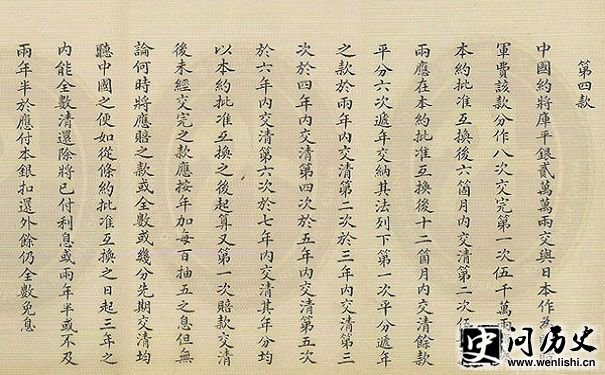 第四款
中國約將庫平銀貳萬萬兩交與日本作為
軍費該款分作八次交完第一次伍千萬兩
本約批准互換後六箇月內交清第二次伍
兩應在本約批准互換後十二箇月內交清餘款
平分六次遞年交納其法列下第一次平分遞年
之款於兩年內交清第二次於三年內交清第三
次於四年內交清第四次於五年內交清第五次
於六年內交清第六次於七年內交清其年分均
以本約批准互換之後起算又第一次賠款交清
後未經交完之款應按年加每百抽五之息但無
論何時將應賠之款或全數或幾分先期交清均
聽中國之便如從條約批准互換之日起三年之
內能全數清還除將已付利息或兩年半或不及
兩年半於應付本銀扣還外餘仍全數免息
问历史
www.wenlishi.cn